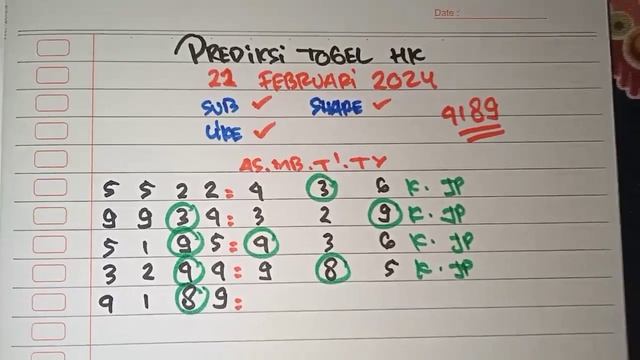 Date :
PREDIKSI TOGEL HK
22 FEBRUARI 2024
SUB ✓ SHARE ✓
LIKE ✓
9189
AS.MB.T'.TY
5 5 2 2 = 4 3 6 K. JP
9 9 3 4 = 3 2 9 K. JP
5 1 9 5 = 9 3 6 K. JP
3 2 9 9 = 9 8 5 K. JP
9 1 8 9 =